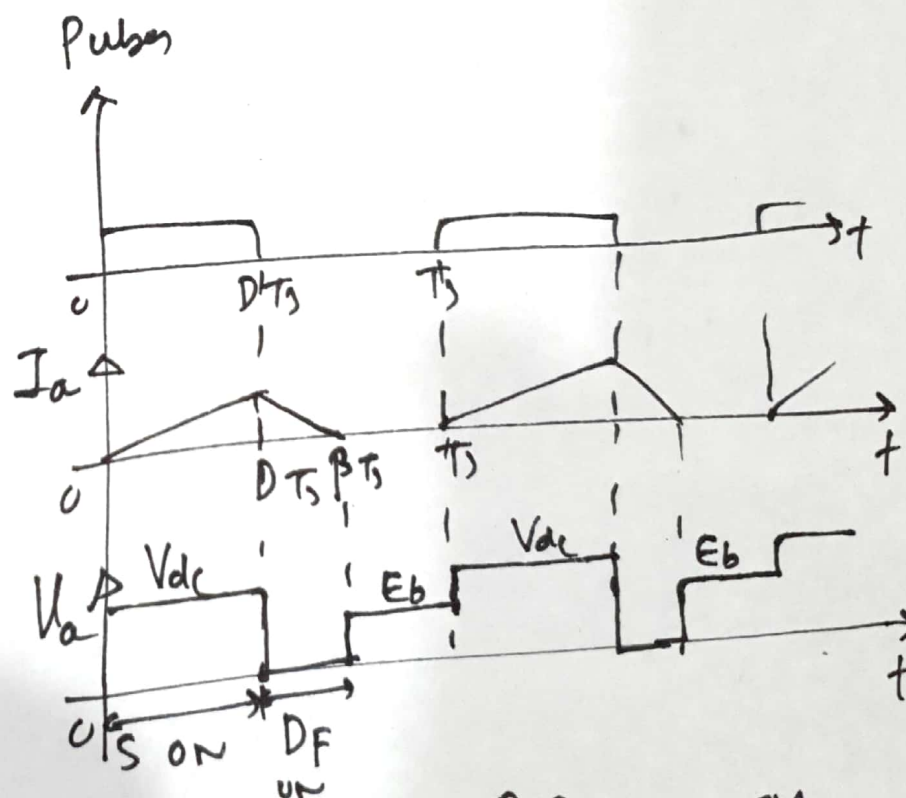 Pulses
t
0
D Ts
Ts
Ia
0
D Ts
β Ts
Ts
t
Vdc
Eb
Vdc
Eb
Va
t
0
S ON
DF
ON